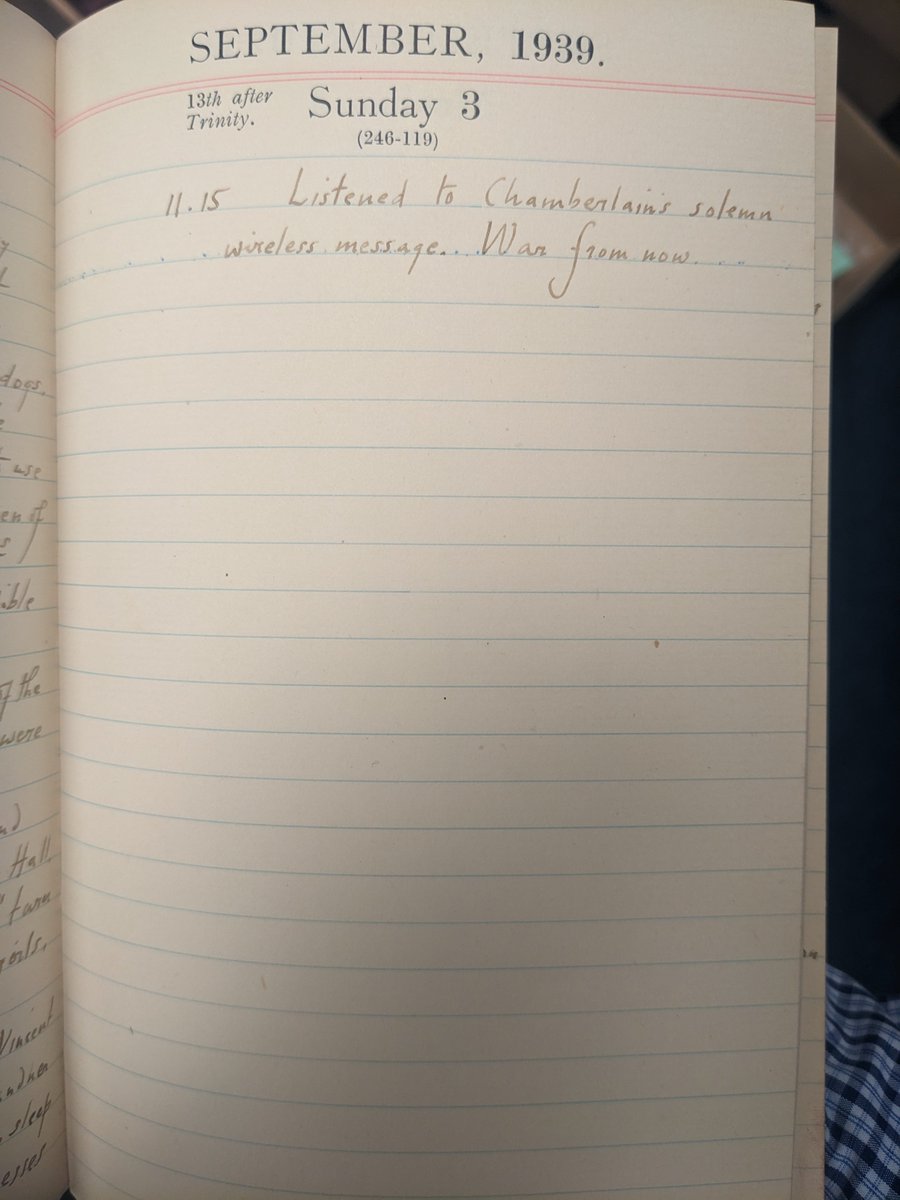 SEPTEMBER, 1939.
13th after
Trinity.
Sunday 3
(246-119)
11.15 Listened to Chamberlain's solemn
wireless message... War from now. ...
dogs.
use
of
ible
of the
were
Hall
farm
Vincent
sleep
esses